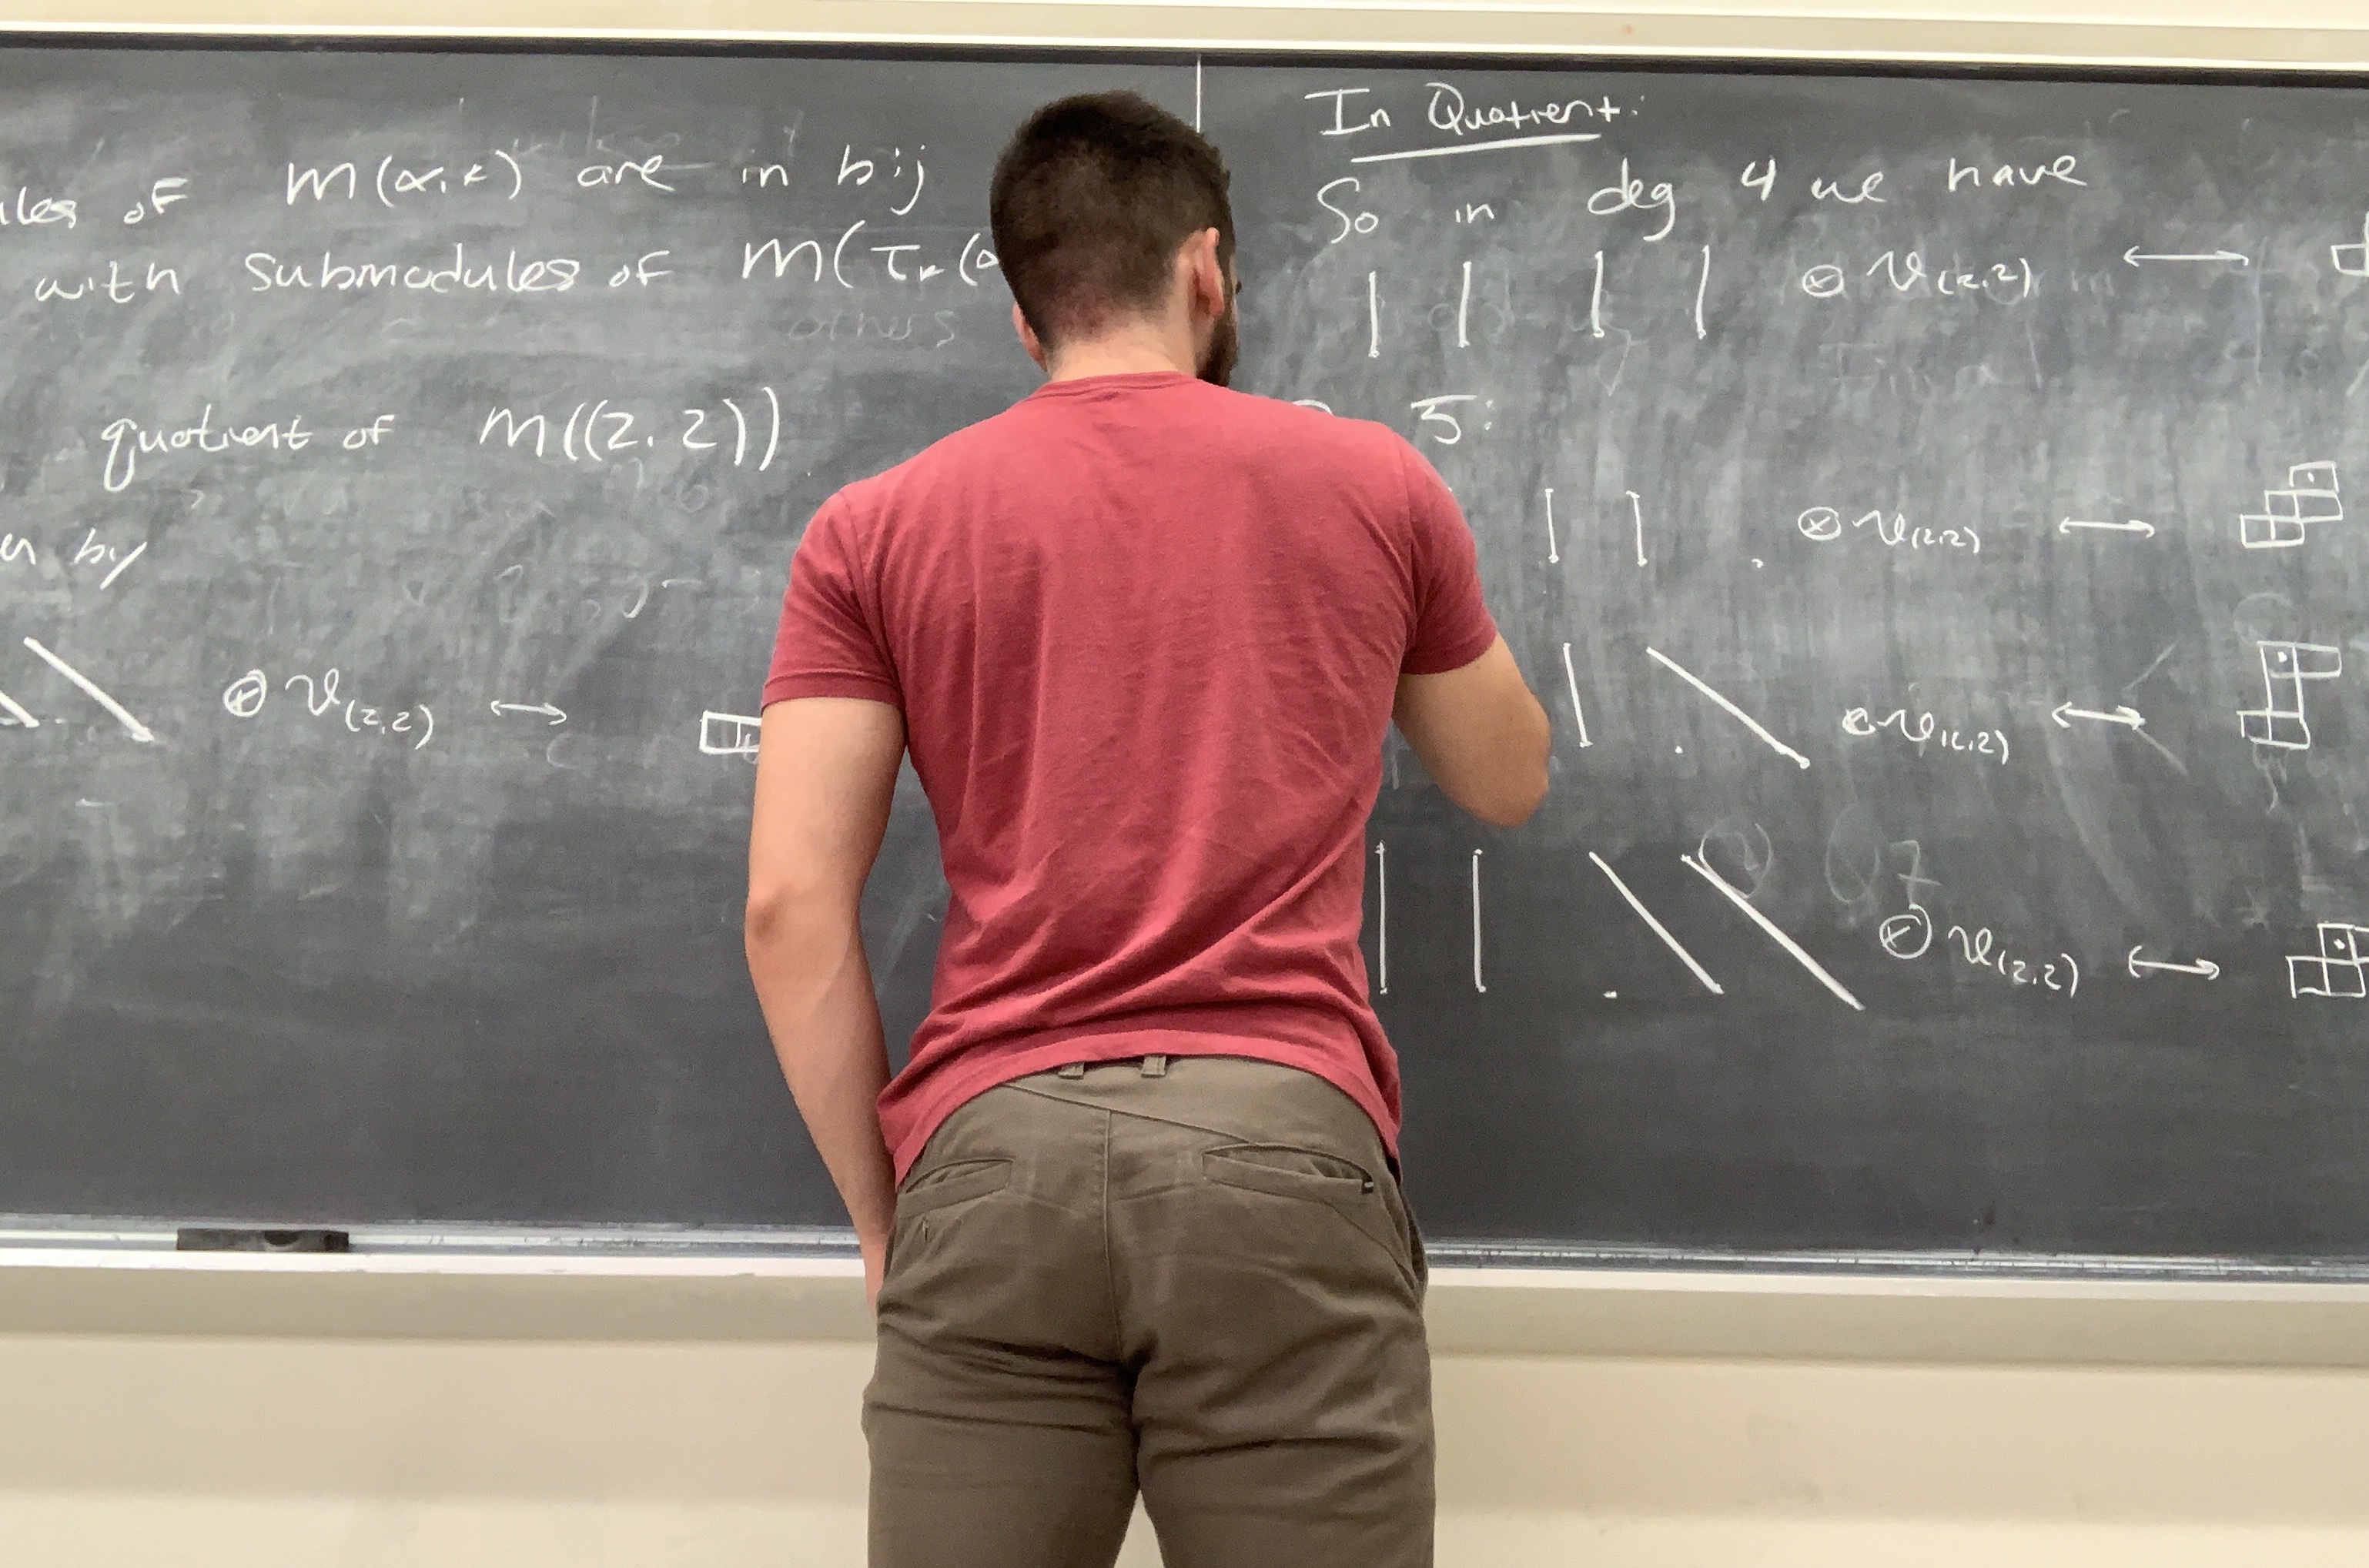 of m(α,k) are in bij
with submodules of m(τ_k(α
quotient of m((2,2))
by
⊗ v_(2,2) ↔
In Quotient:
So in deg 4 we have
| | | | ⊗ v_(2,2) ↔
5:
| | . ⊗ v_(2,2) ↔
| . \ ⊗ v_(2,2) ↔
| | . \ \ ⊗ v_(2,2) ↔